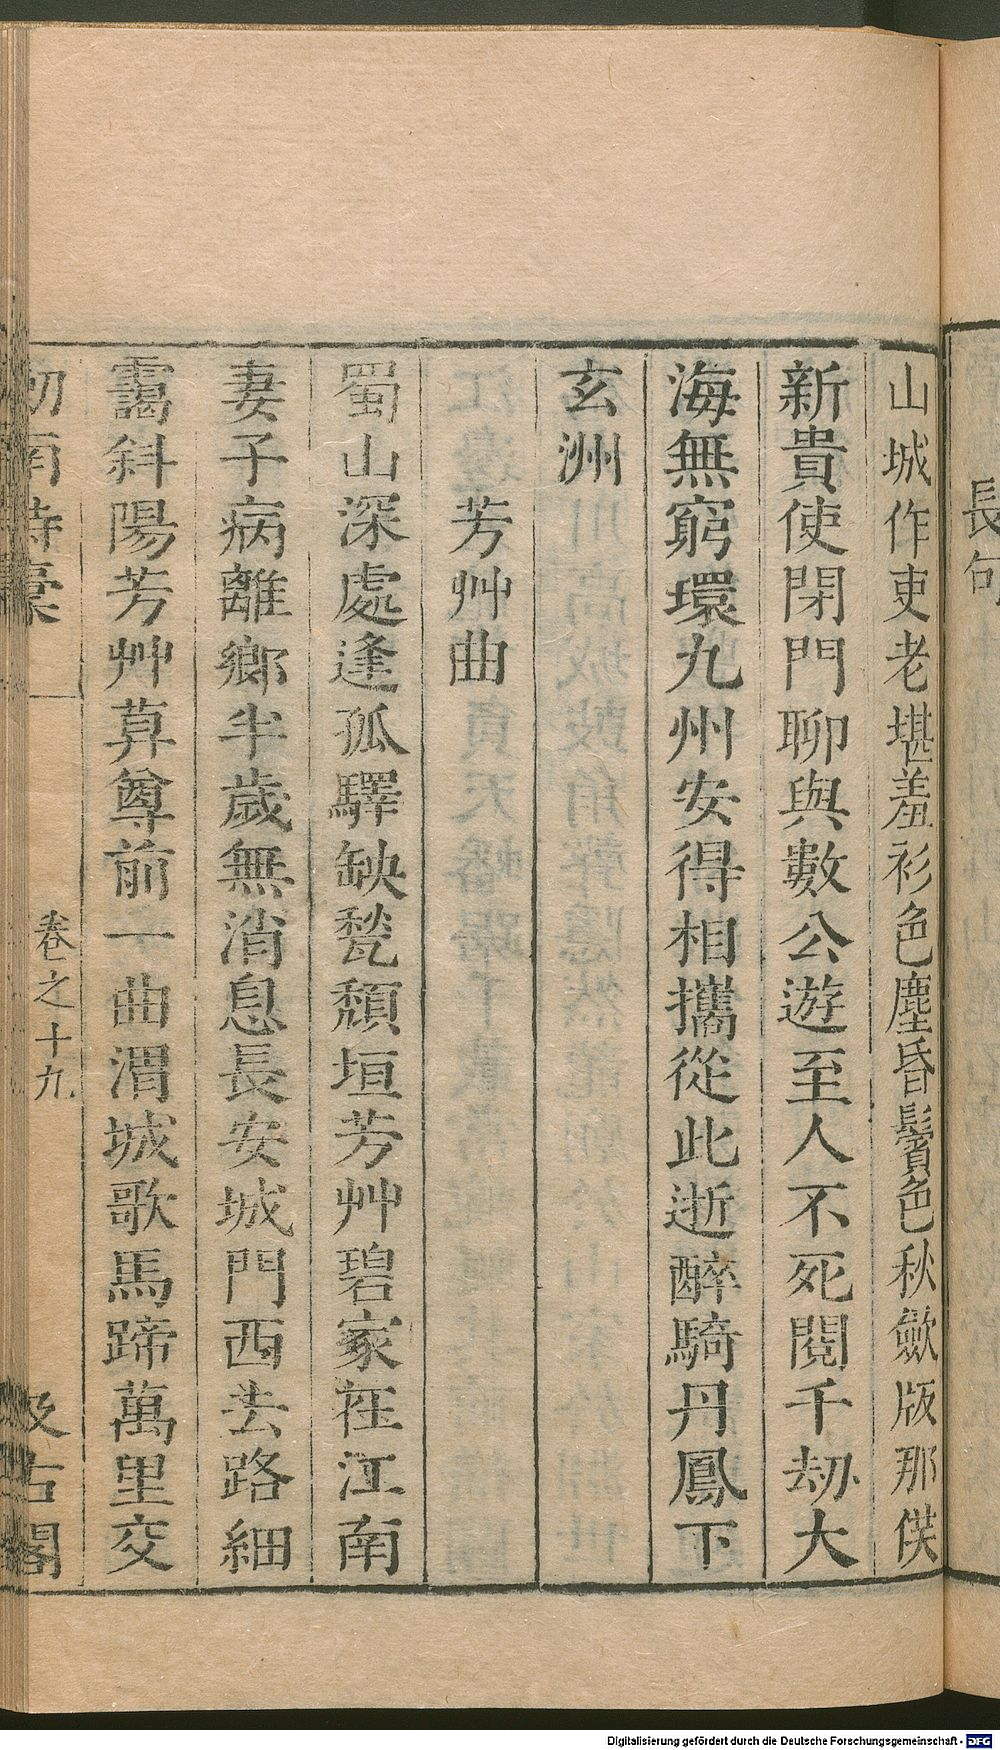 長句
山城作吏老堪羞衫色塵昏鬢色秋斂版那供
新貴使閉門聊與數公遊至人不死閱千劫大
海無窮環九州安得相攜從此逝醉騎丹鳳下
玄洲
芳艸曲
蜀山深處逢孤驛缺甃頹垣芳艸碧家在江南
妻子病離鄉半歲無消息長安城門西去路細
靄斜陽芳艸暮尊前一曲渭城歌馬蹄萬里交
劍南詩稾
卷之十九
汲古閣
Digitalisierung gefördert durch die Deutsche Forschungsgemeinschaft - DFG